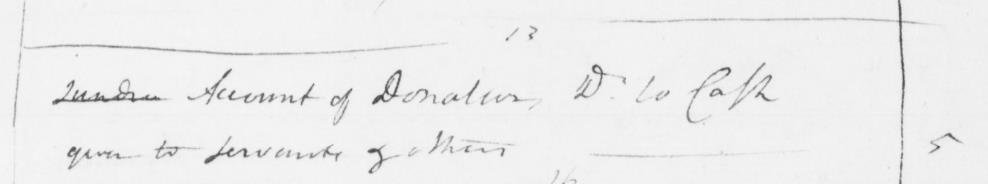 13
Account of Donations, Dr. to Cash
given to Servants & others 5
16